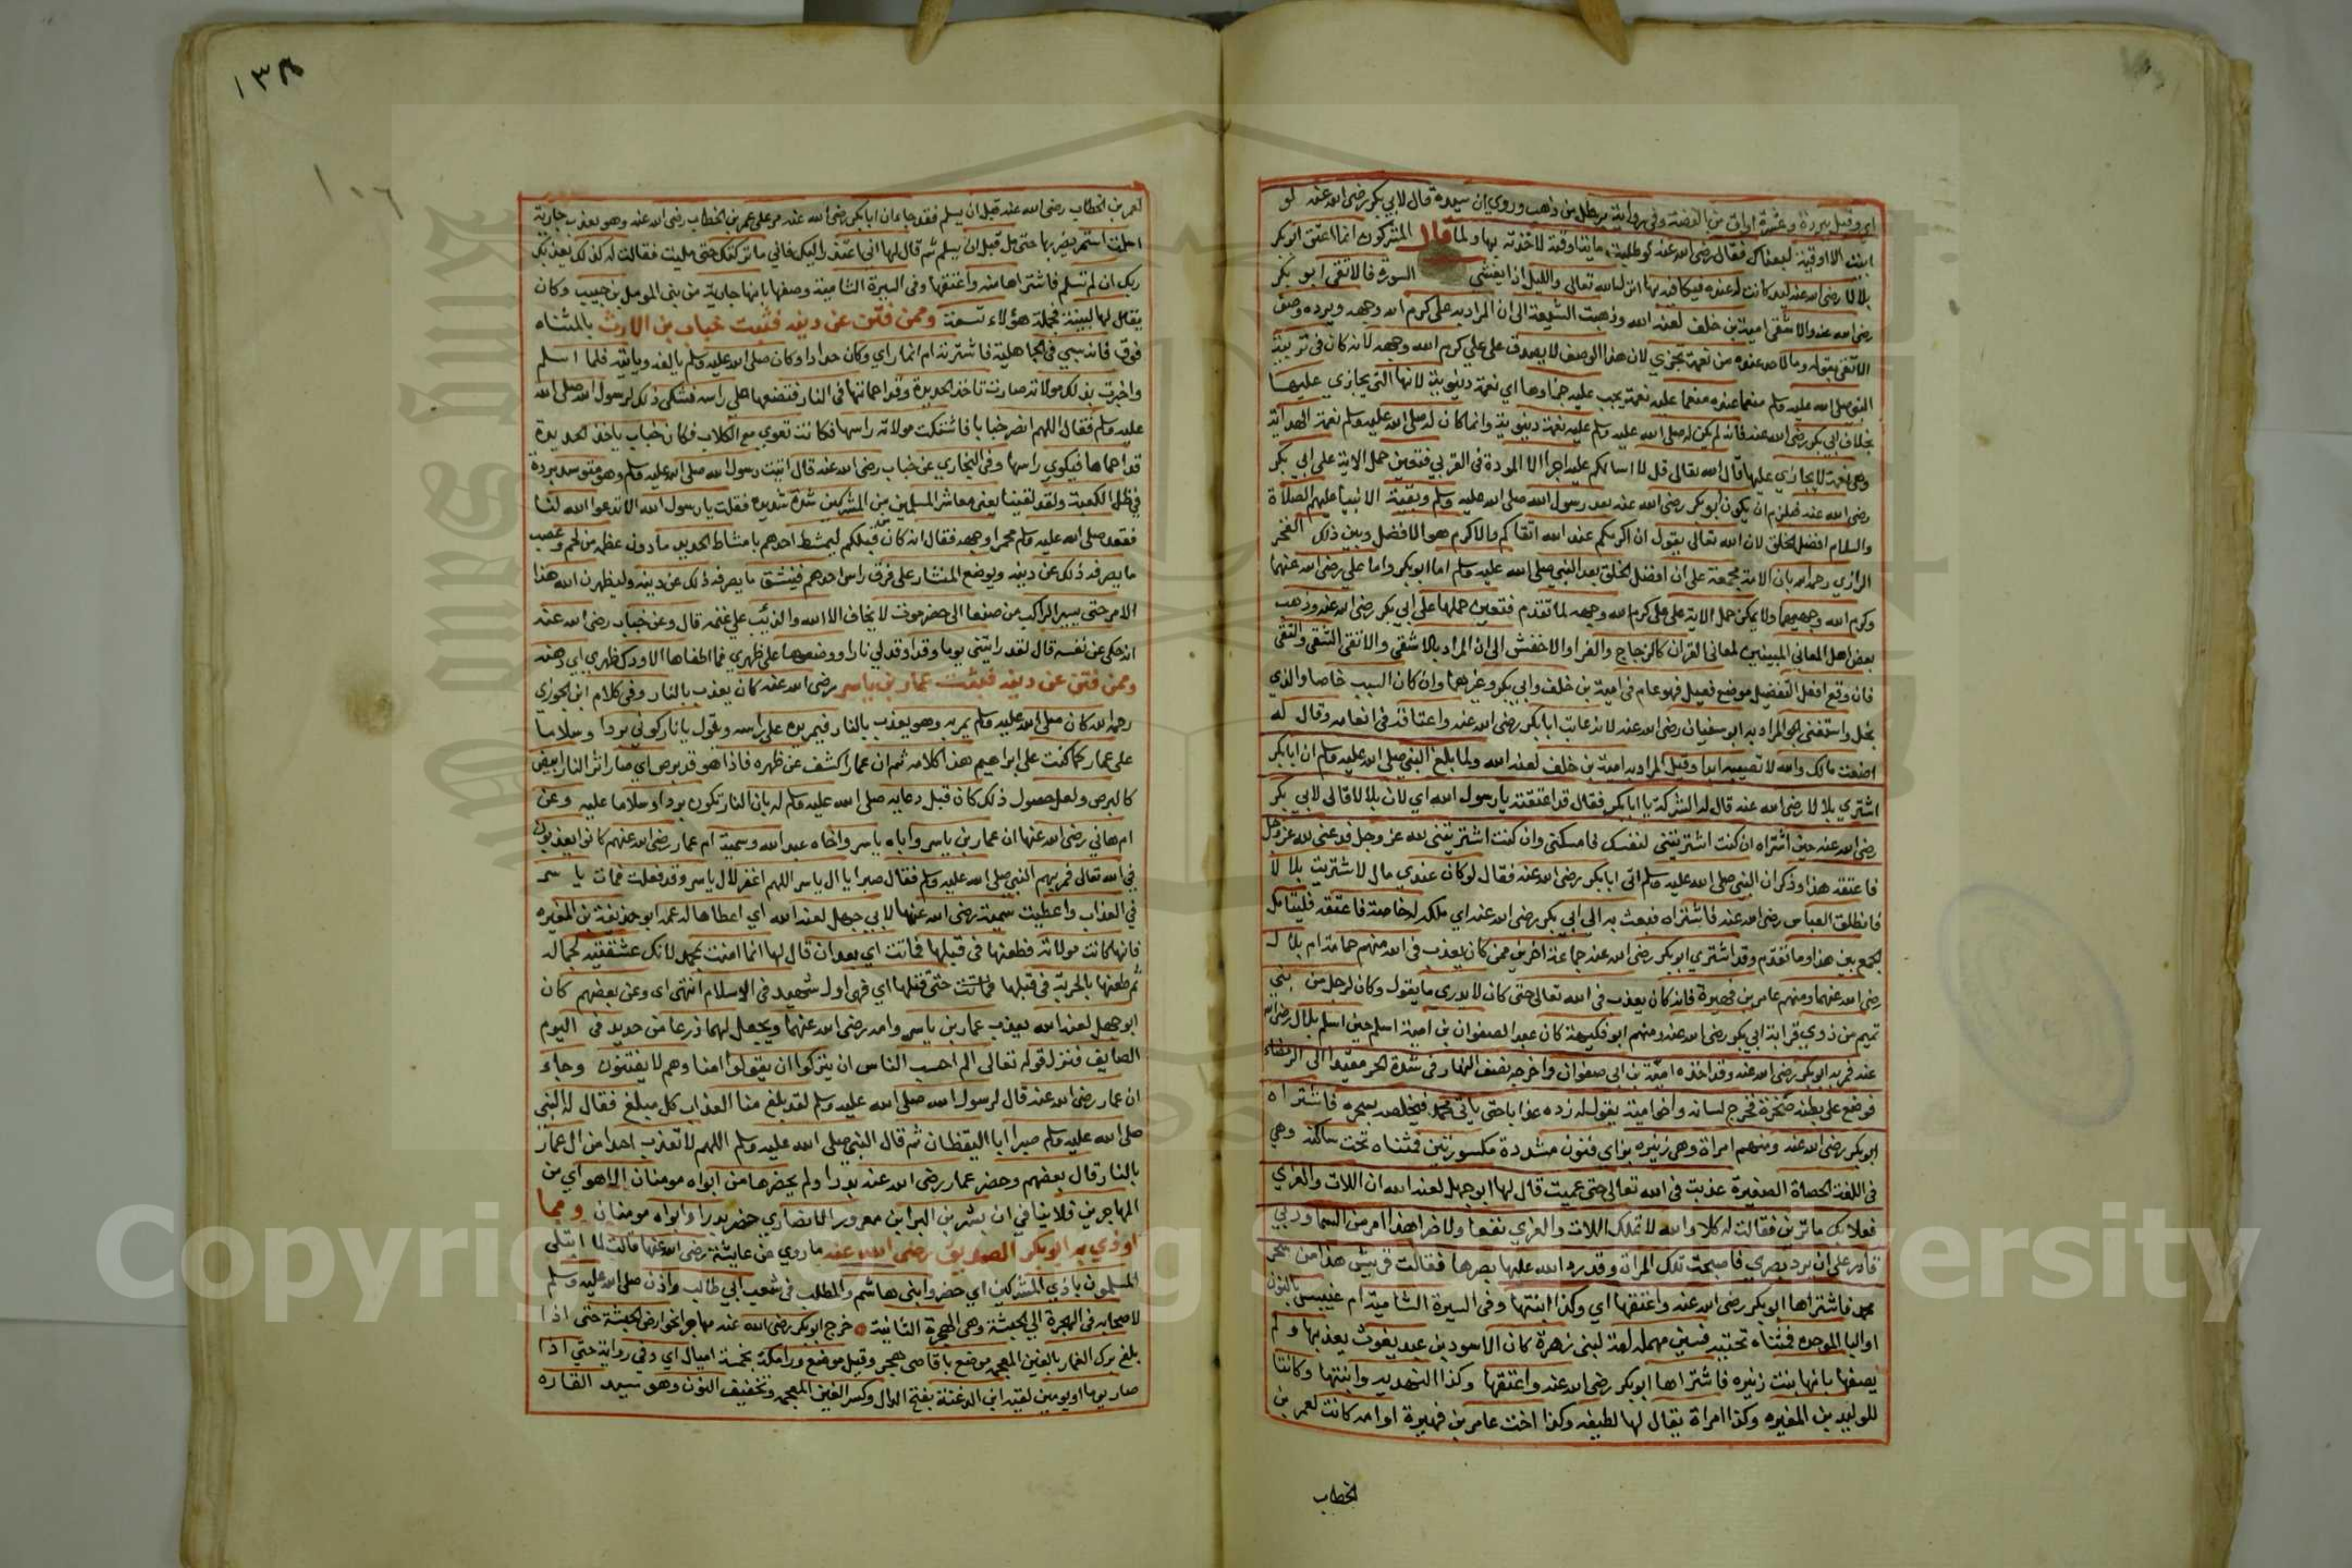 اي وقيل ببردة وعشرة اواق من الفضة وفي رواية برطل من ذهب وروي ان سيده قال لابي بكر رضي الله عنه لو
ابيت الا اوقية لبعناك فقال رضي الله عنه لو طلبت ماية اوقية لاخذته بها ولما قال المشركون انما اعتق ابو بكر
بلالا رضي الله عنه ليد كانت له عنده فيكافيه بها انزل الله تعالى والليل اذا يغشى السورة فالاتقى ابو بكر
رضي الله عنه والاشقى امية بن خلف لعنه الله وذهبت الشيعة الى ان المراد به علي كرم الله وجهه ويرده وصف
الاتقى بقوله وما لاحد عنده من نعمة تجزي لان هذا الوصف لا يصدق على علي كرم الله وجهه لانه كان في تربية
النبي صلى الله عليه وسلم منعما عنده منعما عليه نعمة يجب عليه جزاوها اي نعمة دنيوية لانها التي يجازي عليها
بخلاف ابي بكر رضي الله عنه فانه لم يكن له صلى الله عليه وسلم عليه نعمة دنيوية وانما كان له صلى الله عليه وسلم نعمة الهداية
وهي نعمة لا يجازي عليها قال الله تعالى قل لا اسالكم عليه اجرا الا المودة في القربي فتعين حمل الاية على ابي بكر
رضي الله عنه فلزم ان يكون ابو بكر رضي الله عنه بعد رسول الله صلى الله عليه وسلم وبقية الانبيا عليهم الصلاة
والسلام افضل الخلق لان الله تعالى يقول ان اكرمكم عند الله اتقاكم والاكرم هو الافضل وبين ذلك الفخر
الرازي رحمه الله بان الامة مجمعة على ان افضل الخلق بعد النبي صلى الله عليه وسلم اما ابو بكر واما علي رضي الله عنهما
وكرم الله وجهيهما ولا يمكن حمل الاية على علي كرم الله وجهه لما تقدم فتعين حملها على ابي بكر رضي الله عنه وذهب
بعض اهل المعاني المبينين لمعاني القران كالزجاج والفرا والاخفش الى ان المراد بالاشقى والاتقى الشقى والتقى
فان وقع افعل التفضيل موضع فعيل فهو عام في امية بن خلف وابي بكر وغيرهما وان كان السبب خاصا والذي
بخل واستغنى المراد به ابو سفيان رضي الله عنه لانه عاتب ابا بكر رضي الله عنه واعتاقه في انعامه وقال له
اضعت مالك والله لا تصيبه ابدا وقيل المراد به امية بن خلف لعنه الله ولما بلغ النبي صلى الله عليه وسلم ان ابا بكر
اشتري بلالا رضي الله عنه قال له الشركة يا ابا بكر فقال قد اعتقته يا رسول الله اي لان بلالا قال لابي بكر
رضي الله عنه حين اشتراه ان كنت اشتريتني لنفسك فامسكني وان كنت اشتريتني لله عز وجل فدعني لله عز وجل
فاعتقه هذا وذكر ان النبي صلى الله عليه وسلم اتى ابا بكر رضي الله عنه فقال لو كان عندي مال لاشتريت بلالا
فانطلق العباس رضي الله عنه فاشتراه فبعث به الى ابي بكر رضي الله عنه اي ملكه له خاصة فاعتقه فليتامل
الجمع بين هذا وما تقدم وقد اشتري ابو بكر رضي الله عنه جماعة اخرين ممن كان يعذب في الله منهم حمامة ام بلال
رضي الله عنهما ومنهم عامر بن فهيرة فانه كان يعذب في الله تعالى حتى كان لا يدري ما يقول وكان لرجل من بني
تميم من ذوي قرابة ابي بكر رضي الله عنه ومنهم ابو فكيهة كان عبدا لصفوان بن امية اسلم حين اسلم بلال رضي الله
عنه فمر به ابو بكر رضي الله عنه وقد اخذه امية بن ابي صفوان واخرجه نصف النهار في شدة الحر مقيدا الى الرمضاء
فوضع على بطنه صخرة فخرج لسانه واخوامية يقول له زده عذابا حتى ياتي محمد فيخلصه بسحره فاشتراه
ابو بكر رضي الله عنه ومنهم امراة وهي زنيره بزاي فنون مشددة مكسورتين فمثناه تحت ساكنه وهي
في اللغة الحصاة الصغيرة عذبت في الله تعالى حتى عميت قال لها ابو جهل لعنه الله ان اللات والعزي
فعلا بك ما ترين فقالت له كلا والله لا تملك اللات والعزي نفعا ولا ضرا هذا امر من السما وربي
قادر على ان يرد بصري فاصبحت تلك المراة وقد رد الله عليها بصرها فقالت قريش هذا من سحر
محمد فاشتراها ابو بكر رضي الله عنه واعتقها اي وكذا ابنتها وفي السيرة الشامية ام عنيس بالنون
او اليا الموحده فمثناه تحتيه فسين مهمله لامة لبني زهرة كان الاسود بن عبد يغوث يعذبها ولم
يصفها بانها بنت زنيره فاشتراها ابو بكر رضي الله عنه واعتقها وكذا النهديه وابنتها وكانتا
للوليد بن المغيره وكذا امراة يقال لها لطيفه وكذا اخت عامر بن فهيرة او امه كانت لعمر بن
الخطاب
١٣٨
١٠٦
لعمر بن الخطاب رضي الله عنه قبل ان يسلم فقد جا ان ابا بكر رضي الله عنه مر على عمر بن الخطاب رضي الله عنه وهو يعذب جارية
اسلمت استمر يضربها حتى مل قبل ان يسلم ثم قال لها اني اعتذر اليك فاني ما تركتك حتى مليت فقالت له كذلك يعذبك
ربك ان لم تسلم فاشتراها منه واعتقها وفي السيرة الشامية وصفها بانها جارية من بني المومل بن حبيب وكان
يقال لها لبينة فجملة هؤلاء تسعة وممن فتن عن دينه فثبت خباب بن الارث بالمثناه
فوق فانه سبي في الجاهلية فاشترته ام انمار اي وكان حدادا وكان صلى الله عليه وسلم يالفه وياتيه فلما اسلم
واخبرت بذلك مولاته صارت تاخذ الحديدة وقد احمتها في النار فتضعها على راسه فشكى ذلك لرسول الله صلى الله
عليه وسلم فقال اللهم انصر خبابا فاشتكت مولاته راسها فكانت تعوي مع الكلاب فكان خباب ياخذ الحديدة
قد احماها فيكوي راسها وفي البخاري عن خباب رضي الله عنه قال اتيت رسول الله صلى الله عليه وسلم وهو متوسد بردة
في ظل الكعبة ولقد لقينا يعني معاشر المسلمين من المشركين شدة شديده فقلت يا رسول الله الا تدعوا الله لنا
فقعد صلى الله عليه وسلم محمرا وجهه فقال انه كان من قبلكم ليمشط احدهم بامشاط الحديد ما دون عظمه من لحم وعصب
ما يصرفه ذلك عن دينه ويوضع المنشار على فرق راس احدهم فينشق ما يصرفه ذلك عن دينه وليظهرن الله هذا
الامر حتى يسير الراكب من صنعا الى حضرموت لا يخاف الا الله والذئب على غنمه قال وعن خباب رضي الله عنه
انه حكى عن نفسه قال لقد رايتني يوما وقد اوقد لي نارا ووضعوها على ظهري فما اطفاها الا ودك ظهري اي دهنه
وممن فتن عن دينه فثبت عمار بن ياسر رضي الله عنه كان يعذب بالنار وفي كلام ابن الجوزي
رحمه الله كان صلى الله عليه وسلم يمر به وهو يعذب بالنار فيمر يده على راسه ويقول يا نار كوني بردا وسلاما
على عمار كما كنت على ابراهيم هذا كلامه ثم ان عمارا كشف عن ظهره فاذا هو قد برص اي صار اثر النار ابيض
كالبرص ولعل حصول ذلك كان قبل دعايه صلى الله عليه وسلم له بان النار تكون بردا وسلاما عليه وعن
ام هاني رضي الله عنها ان عمار بن ياسر واباه ياسر واخاه عبد الله وسمية ام عمار رضي الله عنهم كانوا يعذبون
في الله تعالى فمر بهم النبي صلى الله عليه وسلم فقال صبرا يا ال ياسر اللهم اغفر لال ياسر وقد فعلت فمات ياسر
في العذاب واعطيت سمية رضي الله عنها لابي جهل لعنه الله اي اعطاها له عمه ابو حذيفة بن المغيره
فانها كانت مولاته فطعنها في قبلها فماتت اي بعد ان قال لها انما امنت بمحمد لانك عشقتيه لجماله
ثم طعنها بالحربة في قبلها فماتت حتى قتلها اي فهي اول شهيد في الاسلام انتهى اي وعن بعضهم كان
ابو جهل لعنه الله يعذب عمار بن ياسر وامه رضي الله عنهما ويجعل لهما ذرعا من حديد في اليوم
الصايف فنزل قوله تعالى الم احسب الناس ان يتركوا ان يقولوا امنا وهم لا يفتنون وجاء
ان عمار رضي الله عنه قال لرسول الله صلى الله عليه وسلم لقد بلغ منا العذاب كل مبلغ فقال له النبي
صلى الله عليه وسلم صبرا ابا اليقظان ثم قال النبي صلى الله عليه وسلم اللهم لا تعذب احدا من ال عمار
بالنار قال بعضهم وحضر عمار رضي الله عنه بدرا ولم يحضرها من ابواه مومنان الا هو اي من
المهاجرين فلا ينافي ان بشر بن البرا بن معرور الانصاري حضر بدرا وابواه مومنان ومما
اوذي به ابو بكر الصديق رضي الله عنه ما روي عن عايشة رضي الله عنها قالت لما ابتلى
المسلمون باذي المشركين اي حضروا بني هاشم والمطلب في شعب ابي طالب واذن صلى الله عليه وسلم
لاصحابه في الهجرة الى الحبشة وهي الهجرة الثانية خرج ابو بكر رضي الله عنه مهاجرا نحو ارض الحبشة حتى اذا
بلغ برك الغمار بالغين المعجمه موضع باقاصي هجر وقيل موضع ورا مكة بخمسة اميال اي وفي رواية حتي اذا
صار يوما او يومين لقيه ابن الدغنة بفتح الدال وكسر الغين المعجمه وتخفيف النون وهو سيد القاره
King Saud University
Copyright © King Saud University